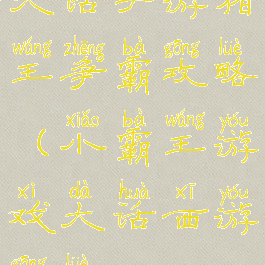 大话 游
wáng zhēng bà gōng lüè
王争霸攻略
xiǎo bà wáng yóu
（小霸王游
xì dà huà xī yóu
戏大话西游
gōng lüè